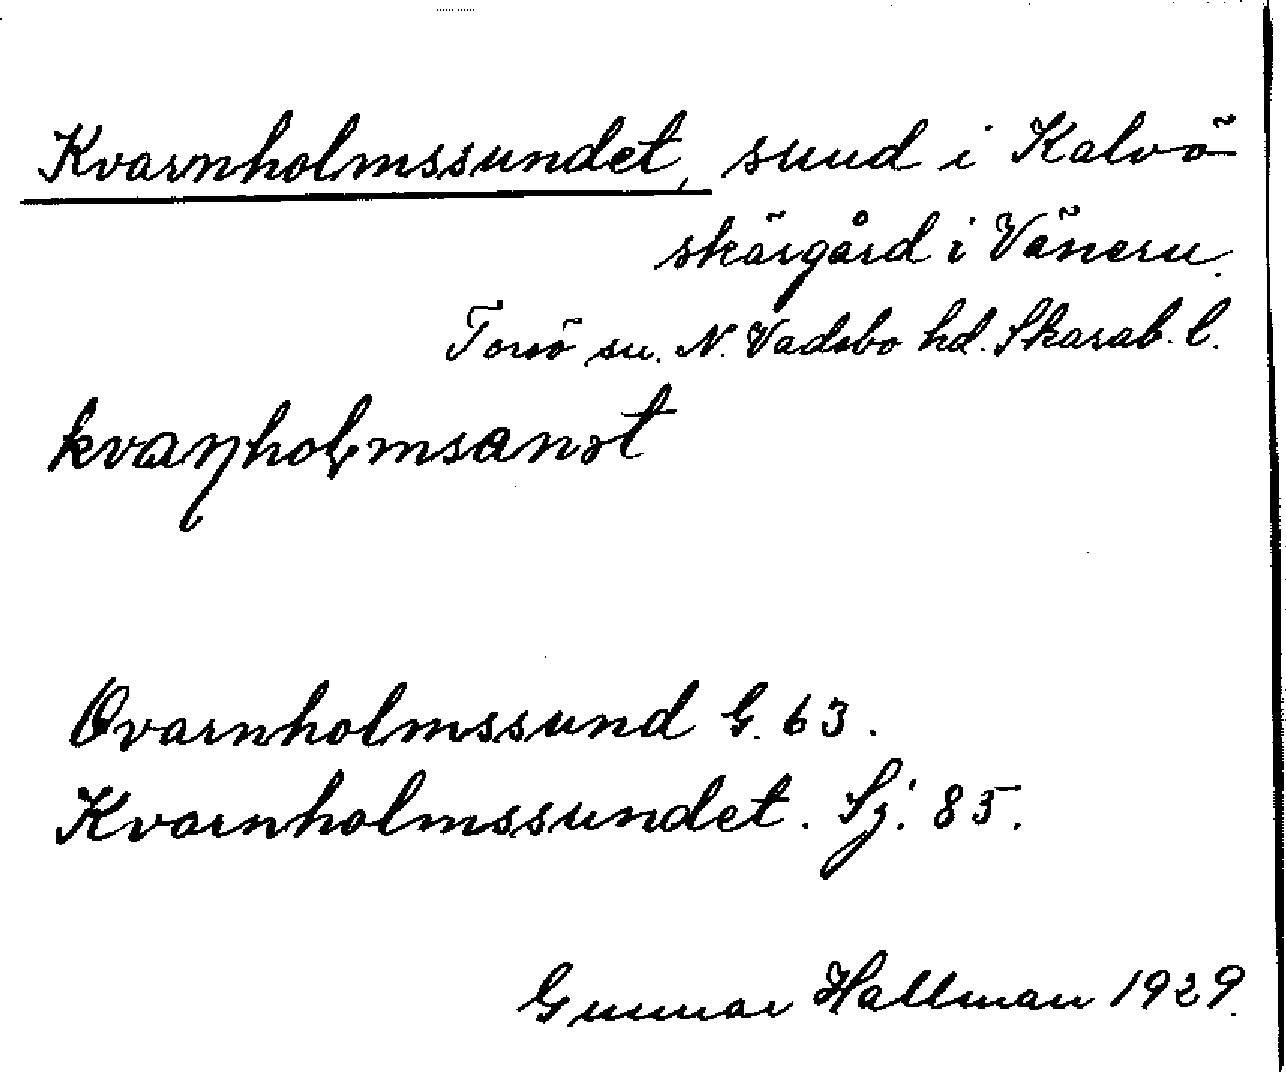 Kvarnholmssundet, sund i Kalvö
skärgård i Vänern.
Torsö sn. N. Vadsbo hd. Skarab. l.
kvaɳholmsanət
Qvarnholmssund G. 63.
Kvarnholmssundet. Sj. 85.
Gunnar Hallman 1929.